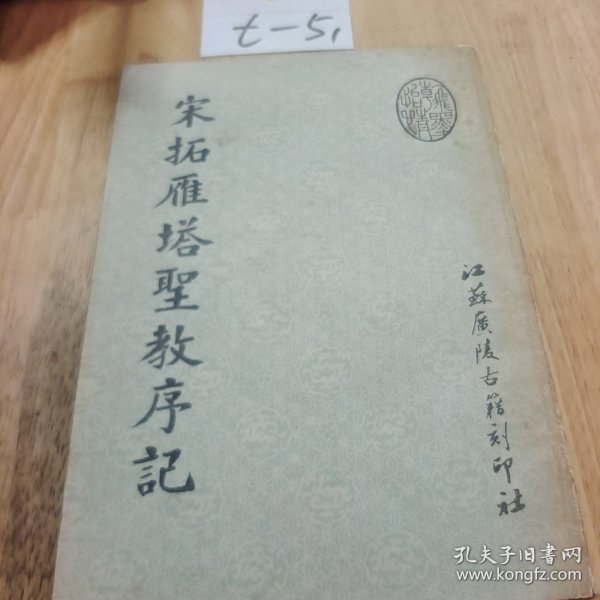 t-51
宋拓雁塔聖教序記
江蘇廣陵古籍刻印社
孔夫子旧书网
www.kongfz.com